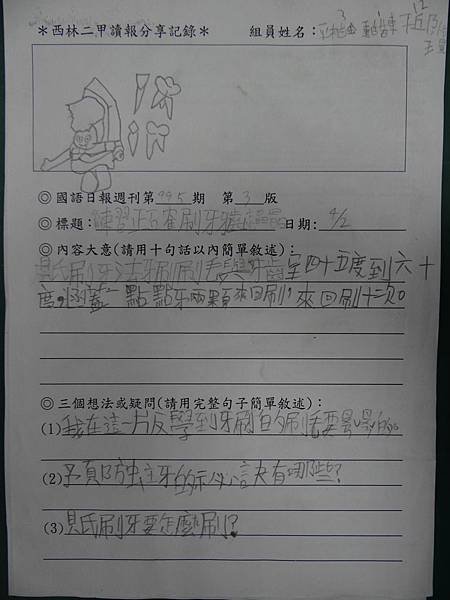 ＊西林二甲讀報分享記錄＊ 組員姓名：
◎ 國語日報週刊第 995 期 第 3 版
◎ 標題：練習正確刷牙 日期：4/2
◎ 內容大意(請用十句話以內簡單敘述)：
貝氏刷牙法牙刷刷毛與牙齒呈四十五度到六十
度,涵蓋一點點牙兩顆兩顆來回刷,來回刷十次。
◎ 三個想法或疑問(請用完整句子簡單敘述)：
(1)我在這一片反學到牙刷的刷毛要
(2)預防蛀牙的祕訣有哪些?
(3)貝氏刷牙要怎麼刷?